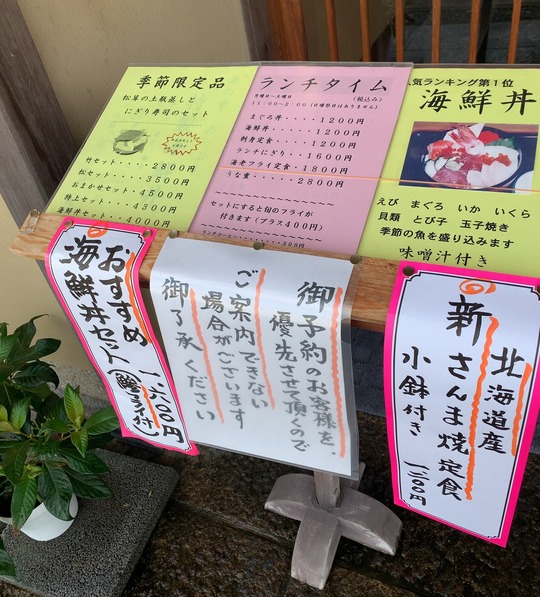 季節限定品
松茸の土瓶蒸しと
にぎり寿司のセット
竹セット・・・・2800円
松セット・・・・3500円
おまかせセット・4500円
特上セット・・・4300円
海鮮丼セット・・4000円
ランチタイム
月曜日~土曜日 (税込み)
11:00~2:00(日曜祭日はありません)
まぐろ丼・・・・1200円
海鮮丼・・・・・1200円
刺身定食・・・・1200円
ランチにぎり・・1600円
海老フライ定食・1800円
うな重・・・・・2800円
セットにすると旬のフライが
付きます(プラス400円)
気ランキング第1位
海鮮丼
えび まぐろ いか いくら
貝類 とび子 玉子焼き
季節の魚を盛り込みます
味噌汁付き
おすすめ
海鮮丼セット
一、六〇〇円
御予約のお客様を、
優先させて頂くので
ご案内できない
場合がございます
御了承ください
北海道産
新さんま焼定食
小鉢付き
一二〇〇円